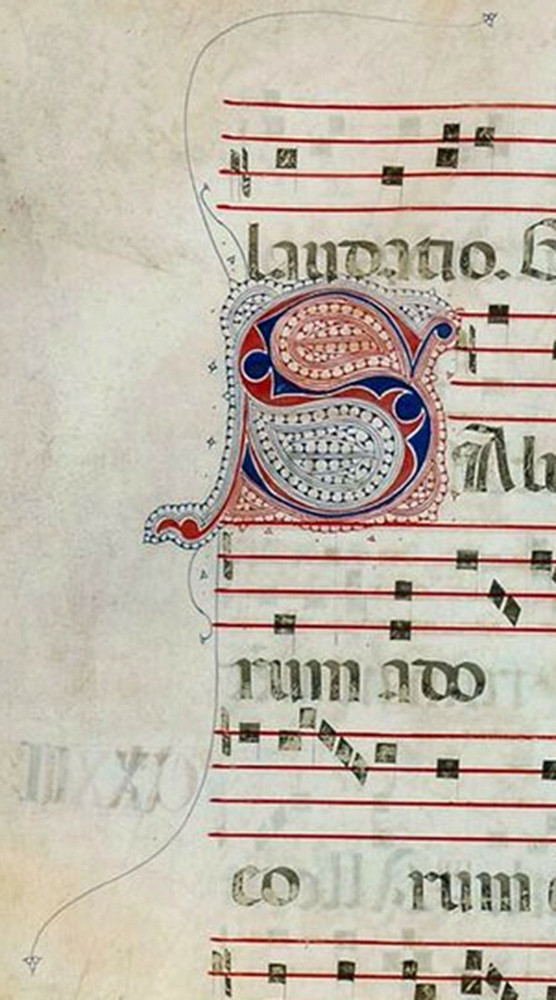 laudatio. G
S Alu
rum ado
co rum